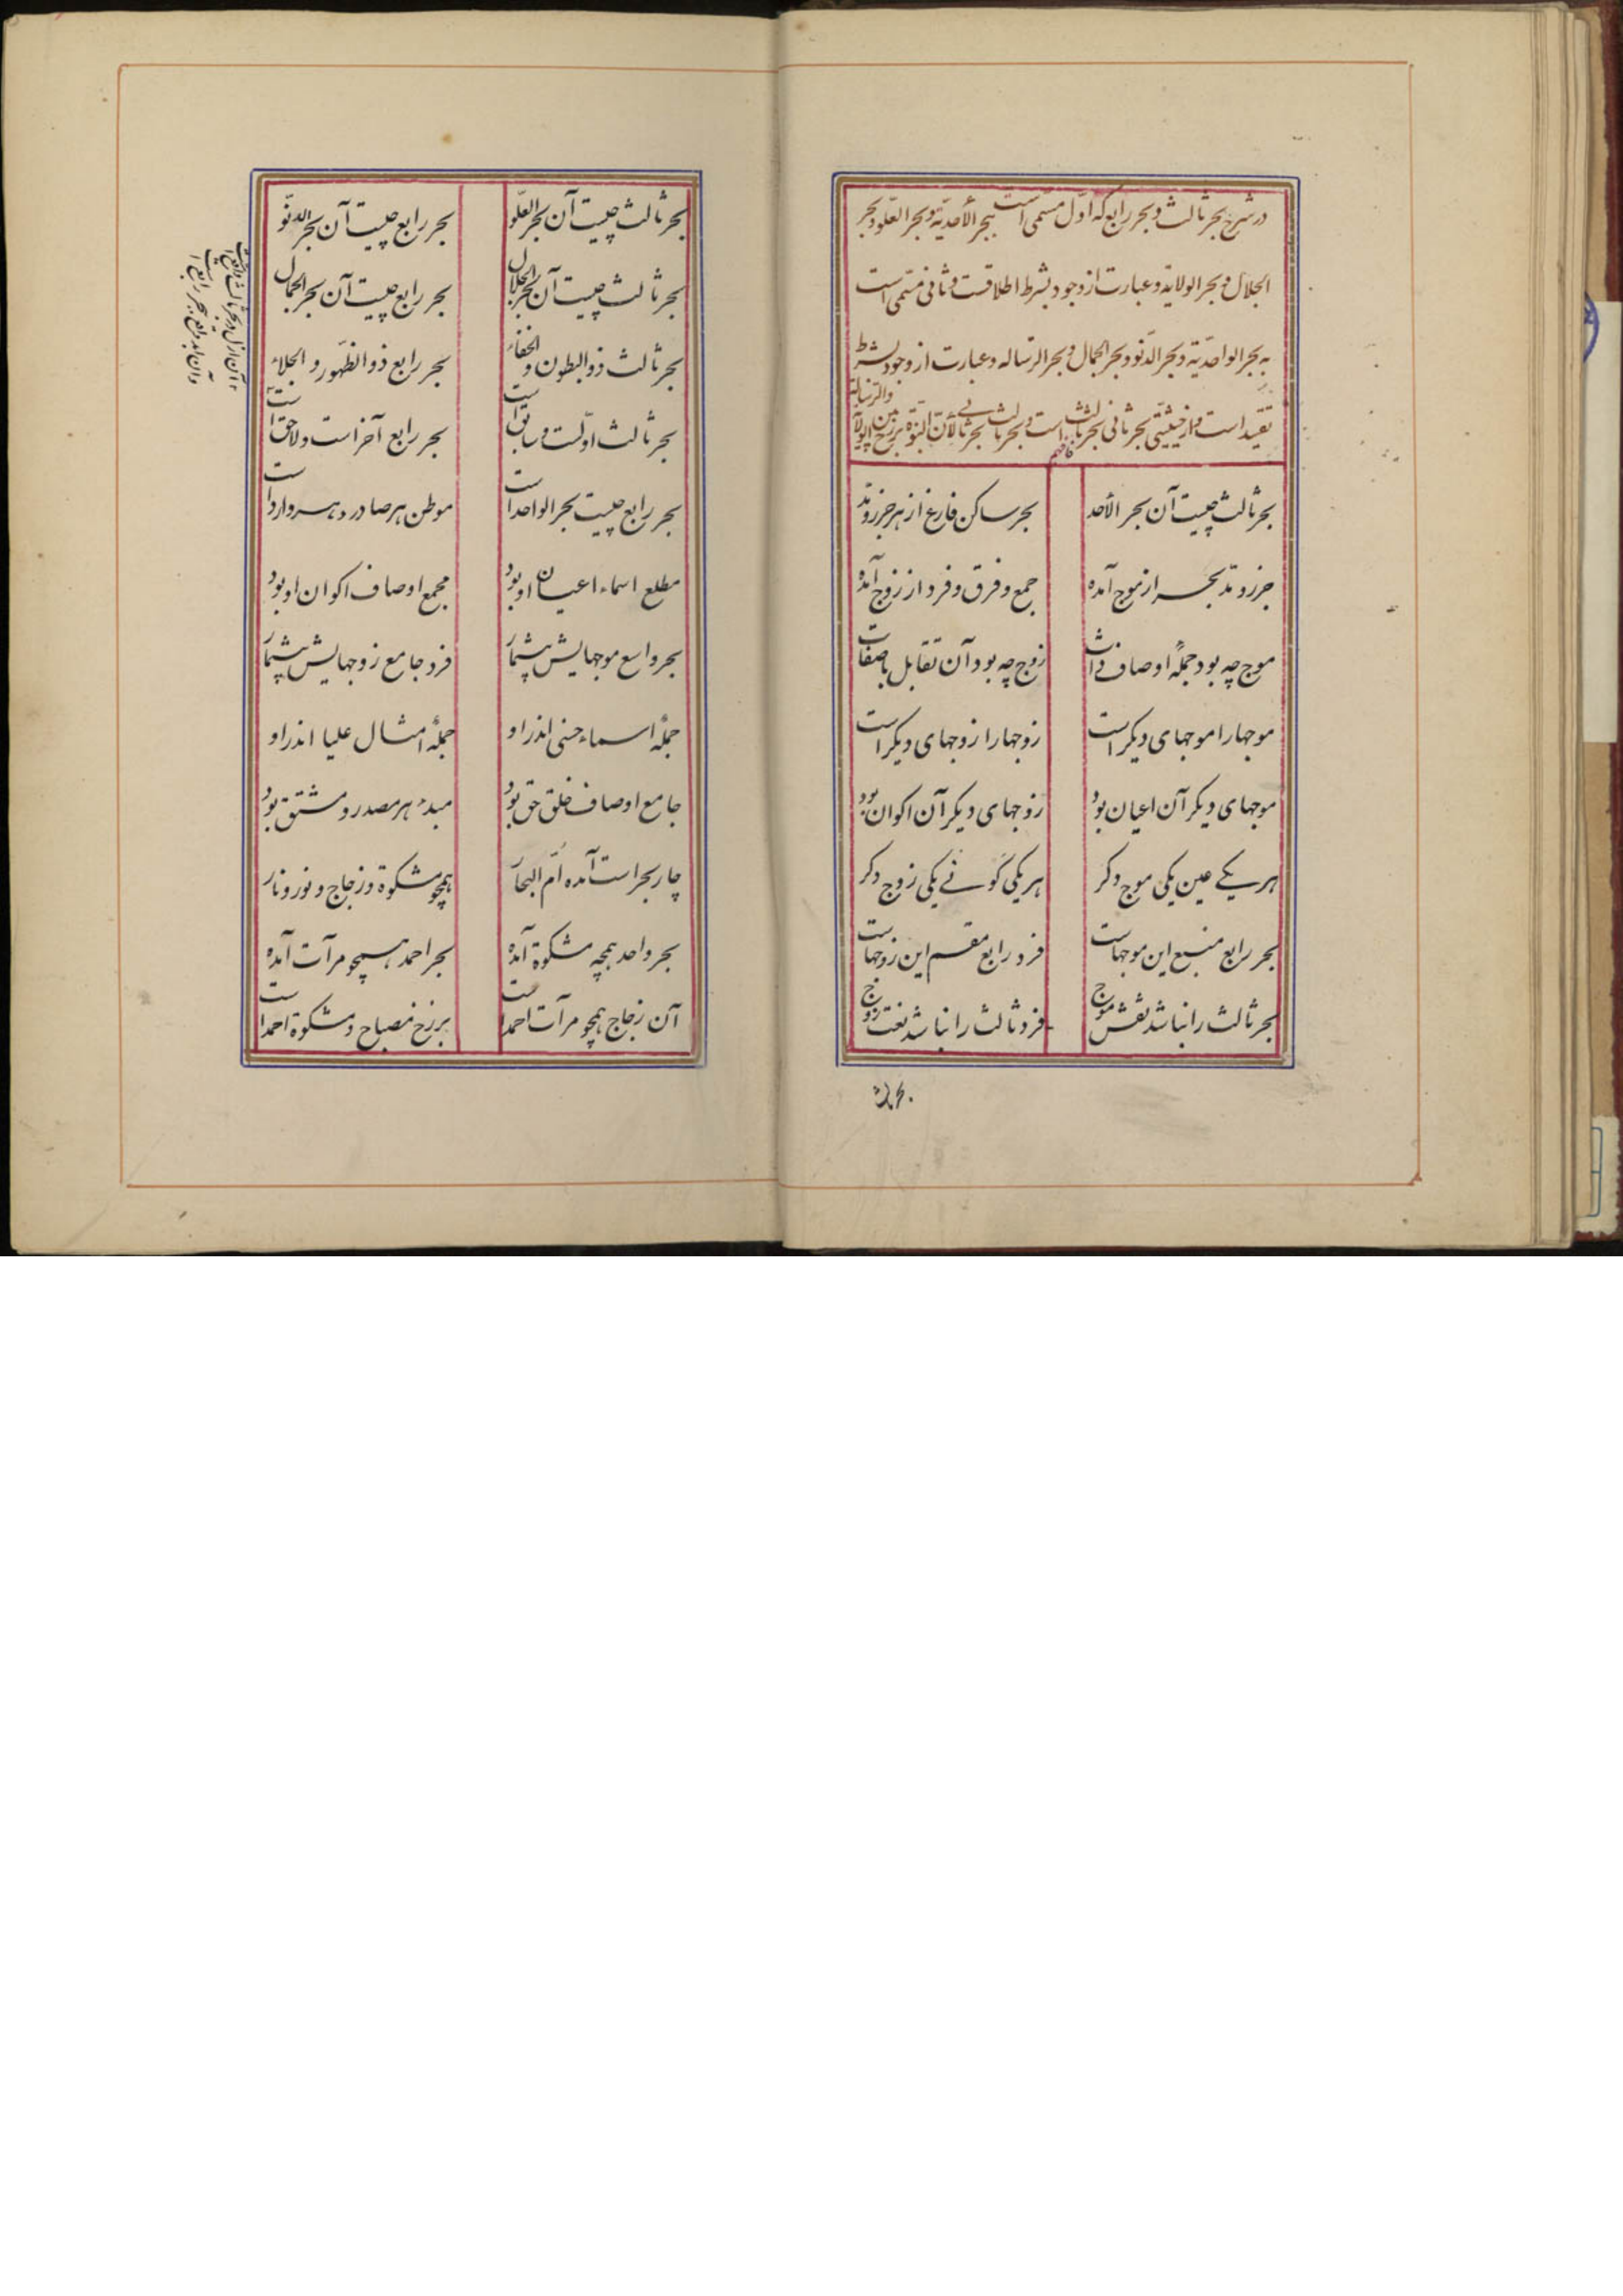 در شرح بحر ثالث و بحر رابع که اوّل مسمّی است ببحر الأحدیّة و بحر العلّو و بحر
الجلال و بحر الولایة و عبارت از وجود بشرط اطلاقست و ثانی مسمّی است
به بحر الواحدیّة و بحر الدنّو و بحر الجمال و بحر الرّساله و عبارت از وجود بشرط
تقیید است و از حیثیّتی بحر ثانی بحر ثالث است و بحر ثالث بحر ثانی لأنّ النبوّة برزخ بین الولایة والرّسالة
فافهم
بحر ثالث چیست آن بحر الأحد
بحر ساکن فارغ از هر جزر و مدّ
جزر و مدّ بحر از موج آمده
جمع و فرق و فرد از زوج آمده
موج چه بود جملهٔ اوصاف ذات
زوج چه بود آن تقابل با صفات
موجها را موجهای دیگر است
زوجها را زوجهای دیگر است
موجهای دیگر آن اعیان بود
زوجهای دیگر آن اکوان بود
هر یکے عین یکی موج دگر
هر یکی کونے یکی زوج دگر
بحر رابع منبع این موجهاست
فرد رابع مقسم این زوجهاست
بحر ثالث را نباشد نقش موج
فرد ثالث را نباشد نعت زوج
بحر ثالث
بحر ثالث چیست آن بحر العلّو
بحر رابع چیست آن بحر الدنّو
بحر ثالث چیست آن بحر الجلال
بحر رابع چیست آن بحر الجمال
بحر ثالث ذو البطون و الخفاء
بحر رابع ذو الظّهور و الجلاء
بحر ثالث اوّلست و سابق است
بحر رابع آخر است و لاحق است
بحر رابع چیست بحر الواحد است
موطن هر صادر و هر وارد است
مطلع اسماء اعیان او بود
مجمع اوصاف اکوان او بود
بحر واسع موجهایش بیشمار
فرد جامع زوجهایش بیشمار
جملهٔ اسماء حسنی اندر او
جملهٔ امثال علیا اندر او
جامع اوصاف خلق حق بود
مبدء هر مصدر و مشتق بود
چار بحر است آمده امّ البحار
همچو مشکوة و زجاج و نور و نار
بحر واحد همچه مشکوة آمده
بحر احمد همچو مرآت آمده
آن زجاج همچو مرآت احمد است
برزخ مصباح و مشکوة احمد است